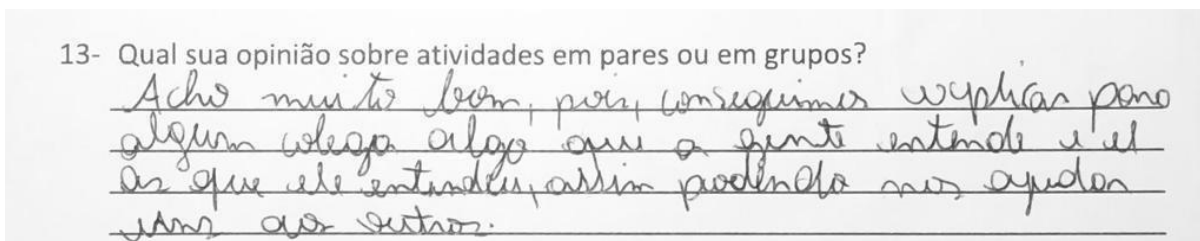 13- Qual sua opinião sobre atividades em pares ou em grupos?
Acho muito bom, pois, conseguimos explicar para
algum colega algo que a gente entende e el
as que ele entendeu, assim podendo nos ajudar
uns aos outros.